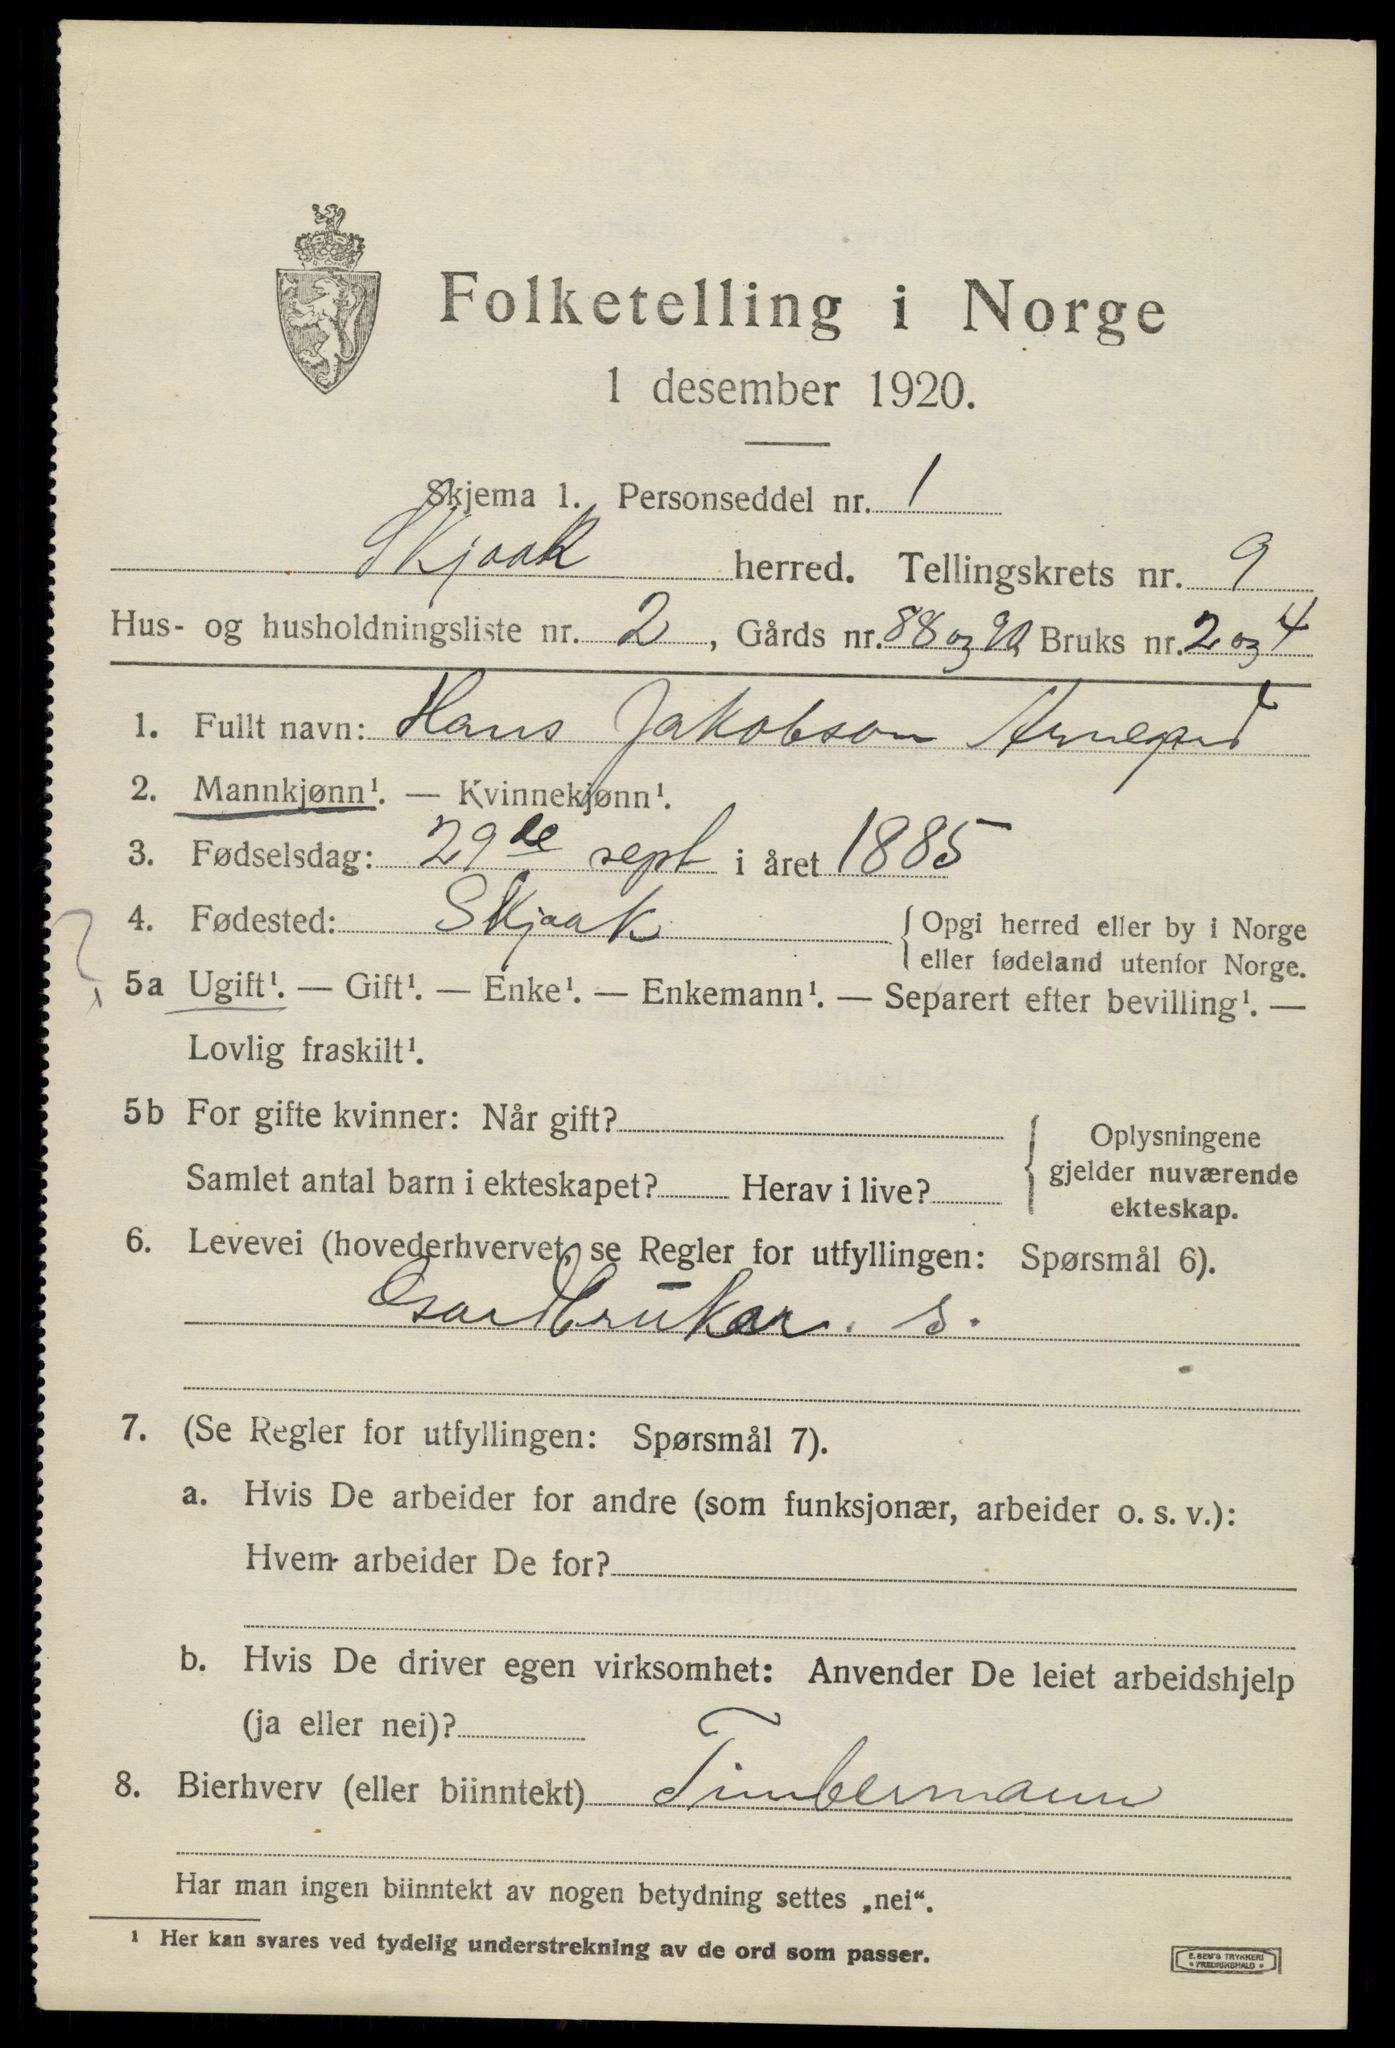 Folketelling i Norge
1 desember 1920.
Skjema 1. Personseddel nr. 1
Skjaak herred. Tellingskrets nr. 9
Hus- og husholdningsliste nr. 2, Gårds nr. 88 og 90, Bruks nr. 2 og 4
1. Fullt navn: Hans Jakobson
2. Mannkjønn¹. — Kvinnekjønn¹.
3. Fødselsdag: 29de sept i året 1885
4. Fødested: Skjaak { Opgi herred eller by i Norge
eller fødeland utenfor Norge.
5a Ugift¹. — Gift¹. — Enke¹. — Enkemann¹. — Separert efter bevilling¹. —
Lovlig fraskilt¹.
5b For gifte kvinner: Når gift?
Samlet antal barn i ekteskapet? Herav i live?
{ Oplysningene
gjelder nuværende
ekteskap.
6. Levevei (hovederhvervet, se Regler for utfyllingen: Spørsmål 6).
Gardbruker. s.
7. (Se Regler for utfyllingen: Spørsmål 7).
a. Hvis De arbeider for andre (som funksjonær, arbeider o. s. v.):
Hvem arbeider De for?
b. Hvis De driver egen virksomhet: Anvender De leiet arbeidshjelp
(ja eller nei)?
8. Bierhverv (eller biinntekt) Timbermann
Har man ingen biinntekt av nogen betydning settes „nei“.
¹ Her kan svares ved tydelig understrekning av de ord som passer.
E. SEM'S TRYKKERI
• FREDRIKSHALD •